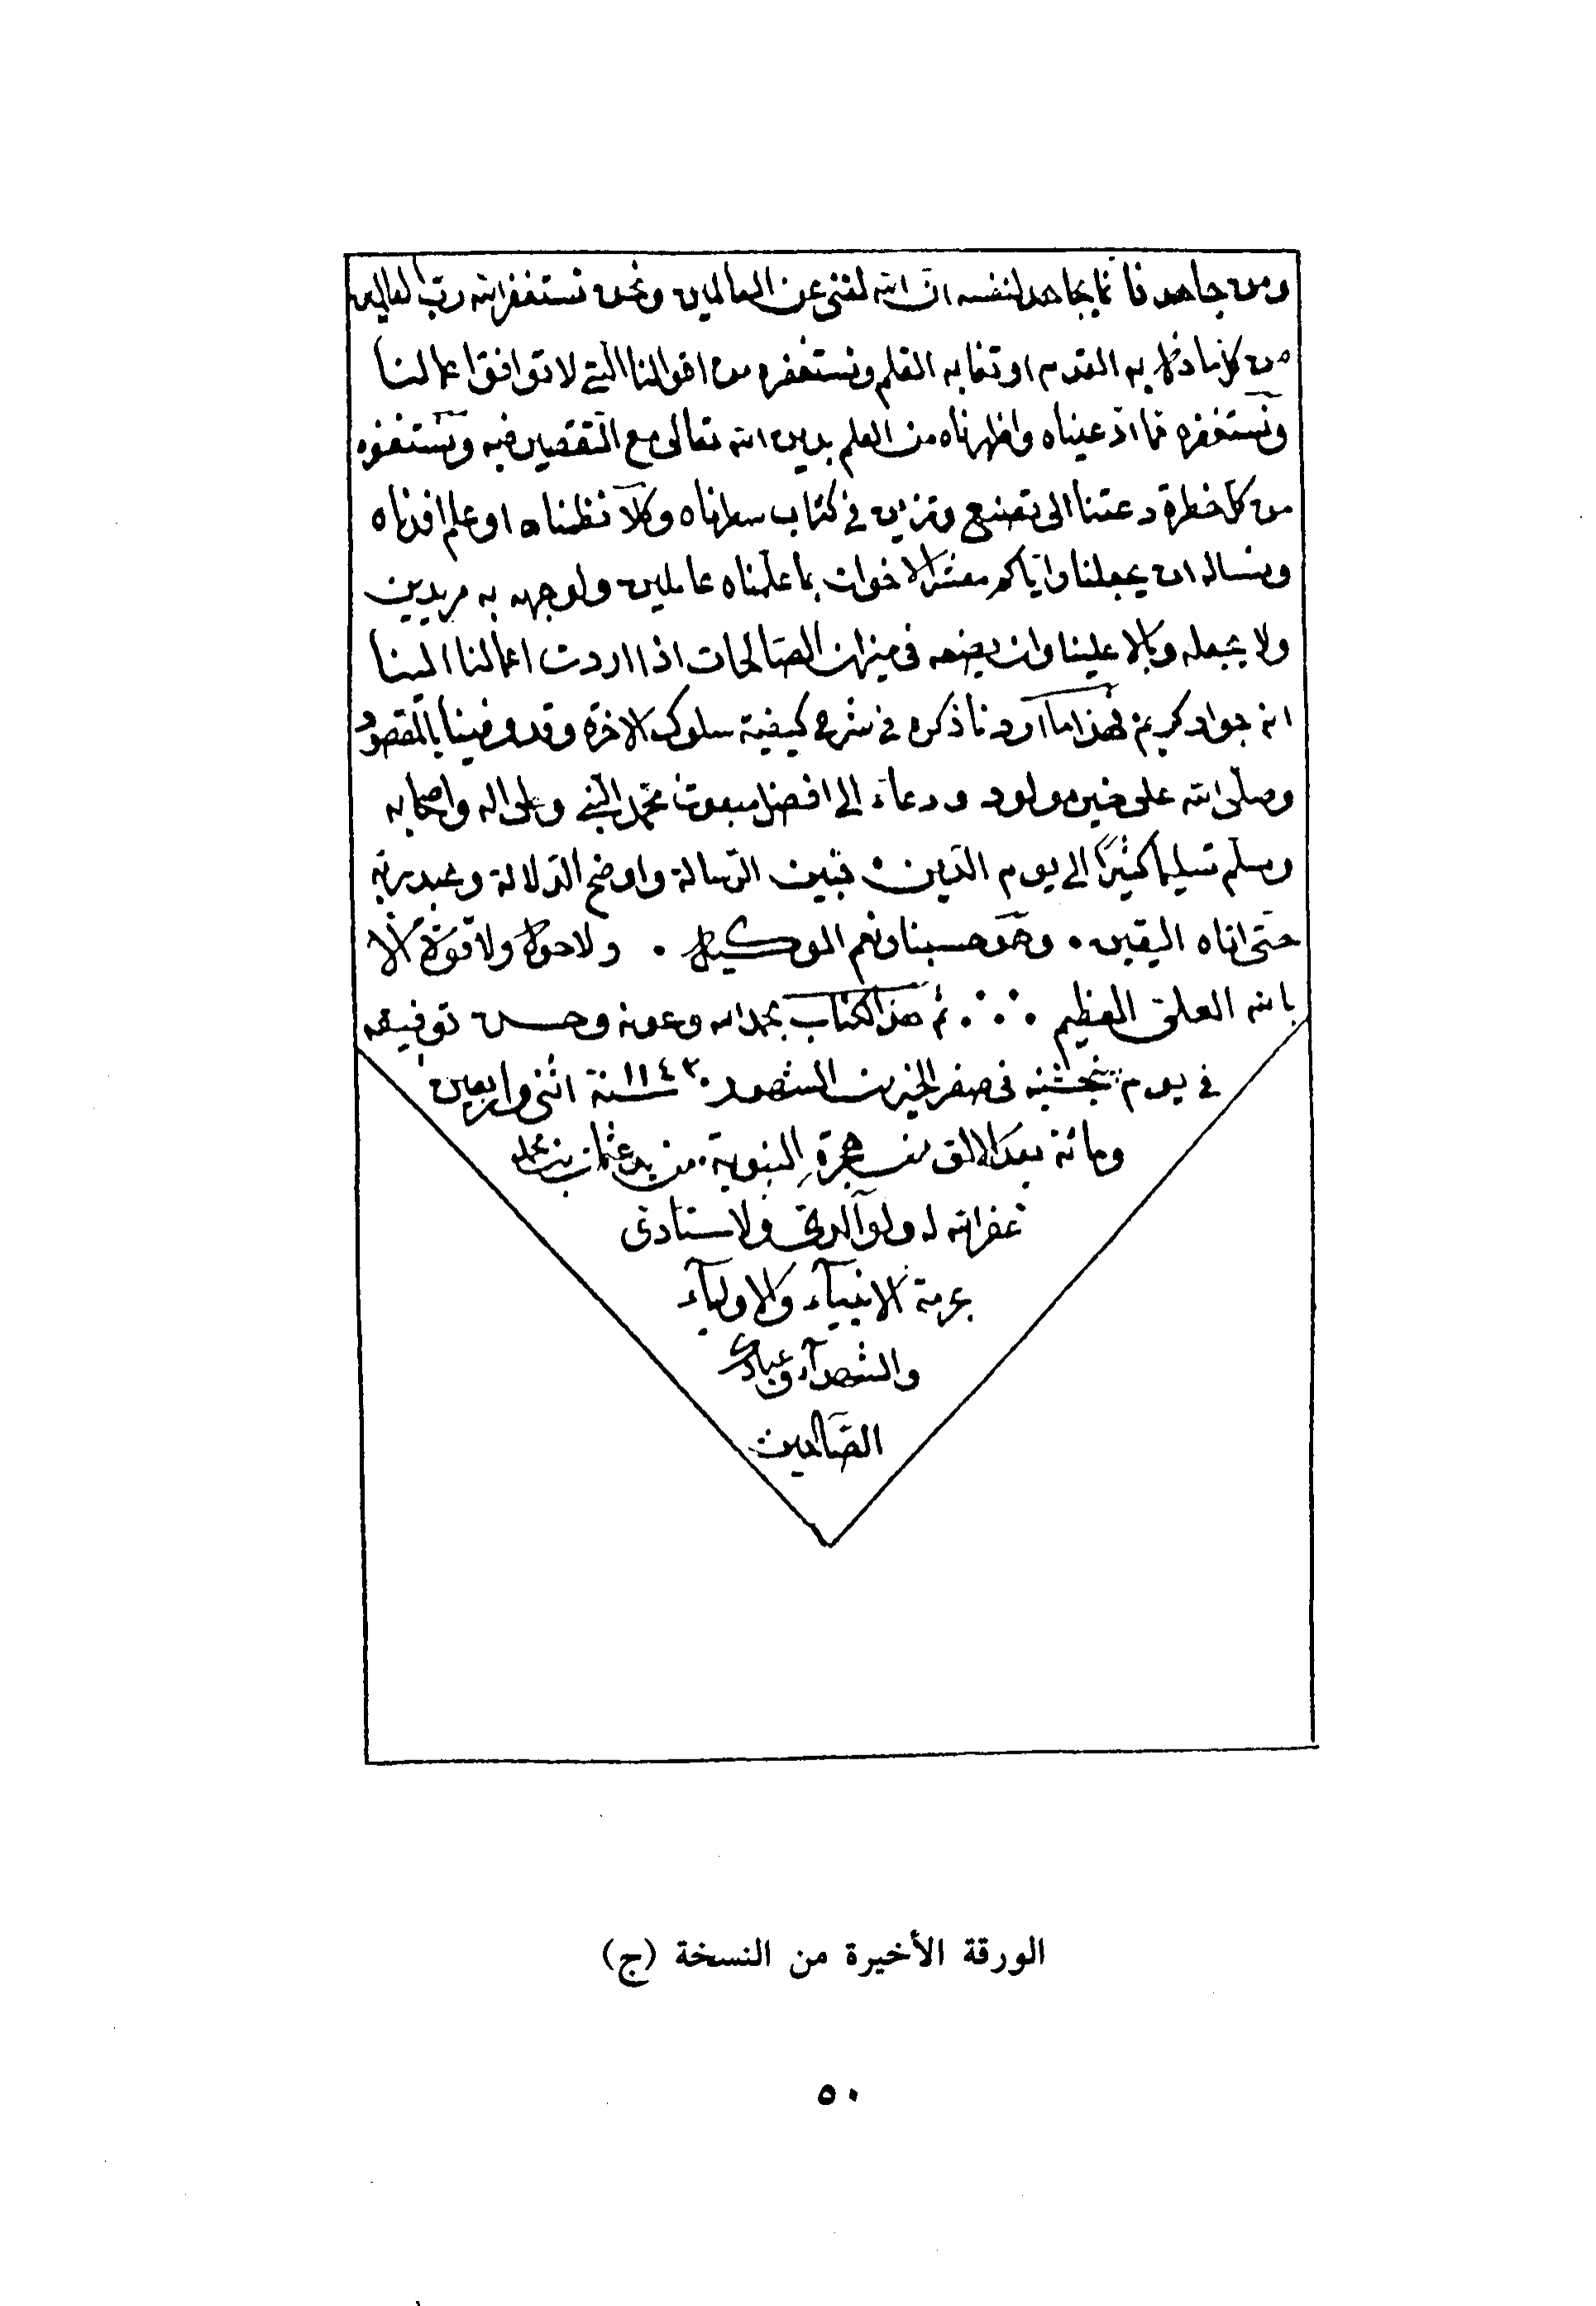 ومن جاهد فانما يجاهد لنفسه ان الله لغنى عن العالمين ونحن نستغفر الله رب العالمين
من كل ما ذل به القدم او تغا به القلم ونستغفره من اقوالنا التى لا توافق اعمالنا
ونستغفره مما ادعيناه واظهرناه من العلم بدين الله تعالى مع التقصير فيه ونستغفره
من كل خطرة دعتنا الى تصنع وتزين في كتاب سطرناه وكلام نظمناه او علم افدناه
ونساله ان يجعلنا واياكم معشر الاخوان بما علمناه عاملين ولوجهه به مريدين
ولا يجعله وبالا علينا وان يضعه فى ميزان الصالحات اذا اردت اعمالنا الينا
انه جواد كريم فهذا ما اردنا ذكره في شرح كيفية سلوك الاخرة وقد وفينا بالمقصود
وصلى الله على خير مولود ودعاء الى افضل مبعوث محمد النبى وعلى اله واصحابه
وسلم تسليما كثيرا الى يوم الدين • فبين الرسالة واوضح الدلالة وعبد ربه
حتى اتاه اليقين • وهو حسبنا ونعم الوكيل • ولا حول ولا قوة الا
بالله العلى العظيم ∴ تم هذا الكتاب بحمد الله وعونه وحسن توفيقه
في يوم پنجشنبه فى صفر الخير من الشهور سنة ١١٤٢ اثنى واربعين
ومائة بعد الالف من هجرة النبوية من يد عثمان بن محمد
غفر الله له ولوالدى ولاستادى
بحرمة الانبيآء والاوليآء
والشهدآء وعبادك
الصالحين
الورقة الأخيرة من النسخة (ج)
٥٠